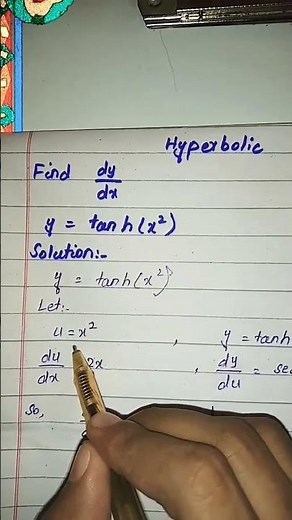 Hyperbolic
Find dy/dx
y = tanh(x²)
Solution:-
y = tanh(x²)
Let:-
u = x² , y = tanh
du/dx 2x , dy/du = se
So,